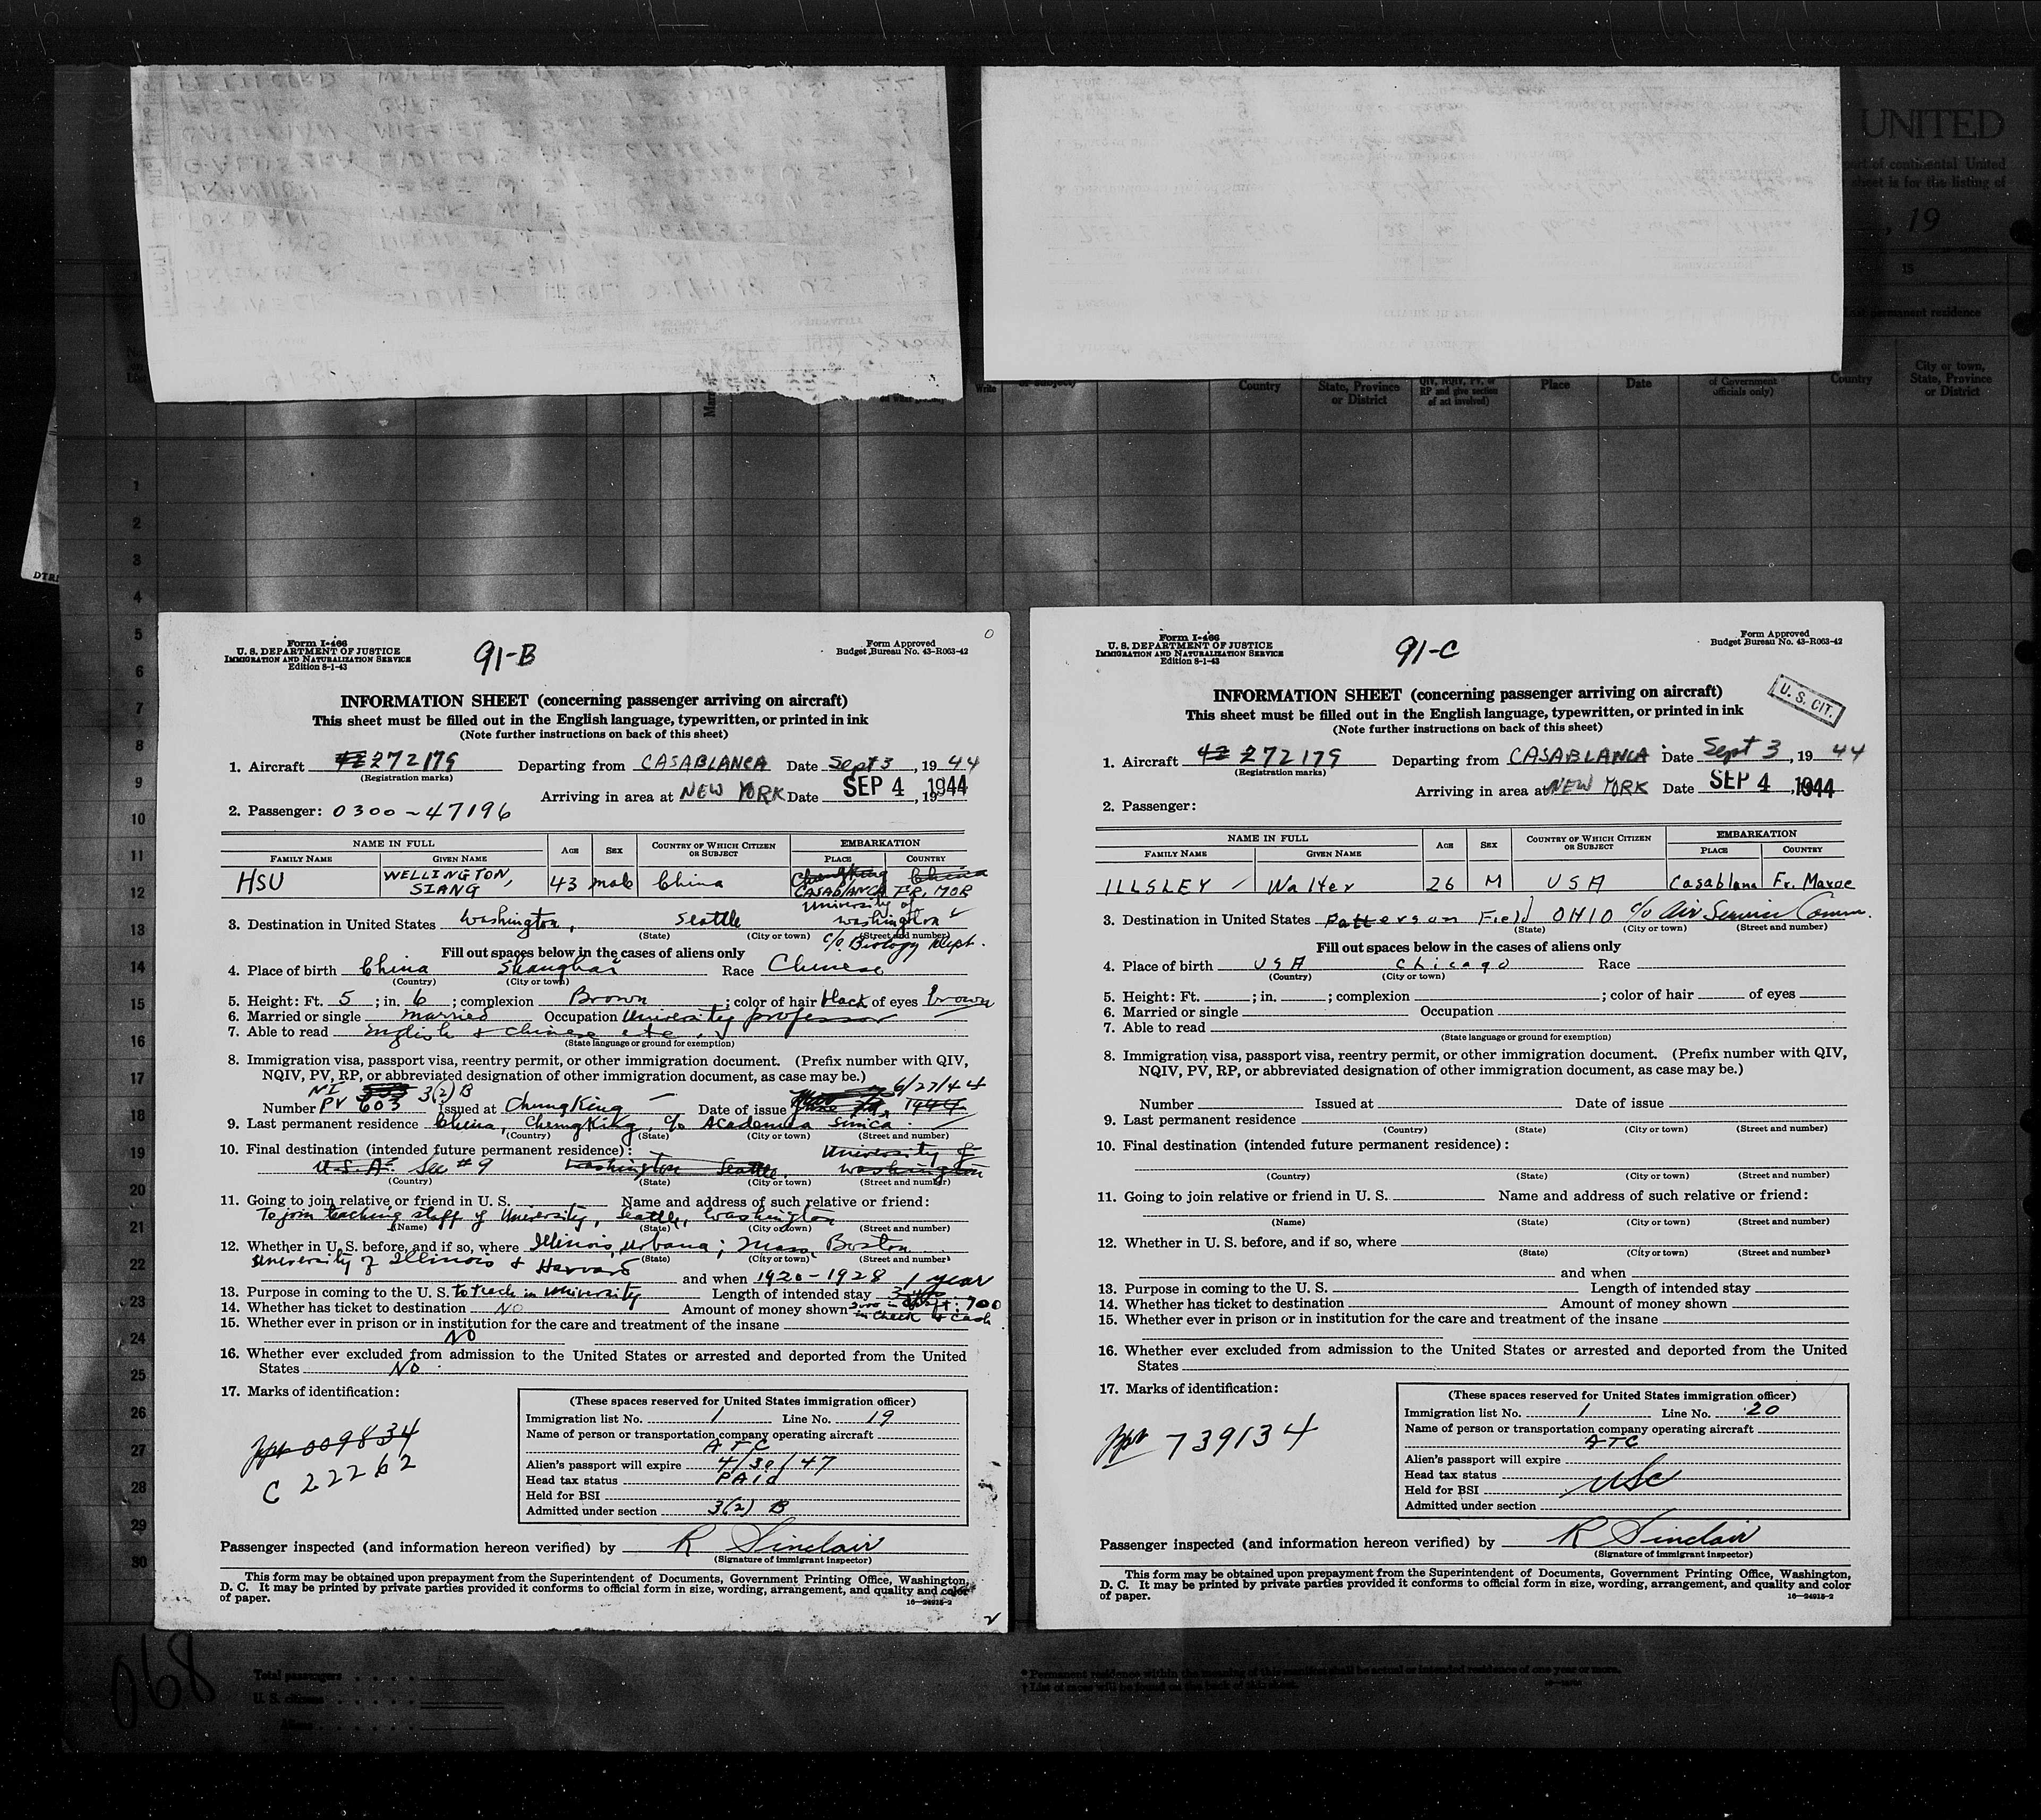 UNITED
part of continental United
sheet is for the listing of
, 19
15
Last permanent residence
Country
State, Province
or District
QIV, NQIV, PV, or
RP and give section
of act involved)
Place
Date
of Government
officials only)
Country
City or town,
State, Province
or District
1
2
3
4
5
6
7
8
9
10
11
12
13
14
15
16
17
18
19
20
21
22
23
24
25
26
27
28
29
30
Form I-466
U. S. DEPARTMENT OF JUSTICE
IMMIGRATION AND NATURALIZATION SERVICE
Edition 8-1-43
91-B
Form Approved
Budget Bureau No. 43-R063-42
INFORMATION SHEET (concerning passenger arriving on aircraft)
This sheet must be filled out in the English language, typewritten, or printed in ink
(Note further instructions on back of this sheet)
1. Aircraft 42 272179 Departing from CASABLANCA Date Sept 3, 1944
(Registration marks)
Arriving in area at NEW YORK Date SEP 4 1944, 19
2. Passenger: 0300-47196
NAME IN FULL AGE SEX COUNTRY OF WHICH CITIZEN OR SUBJECT EMBARKATION
FAMILY NAME GIVEN NAME PLACE COUNTRY
HSU WELLINGTON, SIANG 43 male China Chungking China
CASABLANCA FR. MOR
3. Destination in United States Washington, Seattle University of Washington
(State) (City or town) (Street and number)
c/o Biology Dept.
Fill out spaces below in the cases of aliens only
4. Place of birth China Shanghai Race Chinese
(Country) (City or town)
5. Height: Ft. 5; in. 6; complexion Brown; color of hair black of eyes brown
6. Married or single married Occupation University professor
7. Able to read English & Chinese etc.
(State language or ground for exemption)
8. Immigration visa, passport visa, reentry permit, or other immigration document. (Prefix number with QIV,
NQIV, PV, RP, or abbreviated designation of other immigration document, as case may be.)
NI 3(2)B 6/27/44
Number PV 603 Issued at Chungking Date of issue June 1944
9. Last permanent residence China, Chungking, c/o Academia Sinica
(Country) (State) (City or town) (Street and number)
10. Final destination (intended future permanent residence): University of
U.S.A. See #9 Washington Seattle, Washington
(Country) (State) (City or town) (Street and number)
11. Going to join relative or friend in U. S. Name and address of such relative or friend:
To join teaching staff of University, Seattle, Washington
(Name) (State) (City or town) (Street and number)
12. Whether in U. S. before, and if so, where Illinois, Urbana; Mass. Boston
(State) (City or town) (Street and number)
University of Illinois & Harvard and when 1920-1928
1 year
13. Purpose in coming to the U. S. to teach in University Length of intended stay
14. Whether has ticket to destination NO Amount of money shown in check 700 cash
15. Whether ever in prison or in institution for the care and treatment of the insane
NO
16. Whether ever excluded from admission to the United States or arrested and deported from the United
States NO
17. Marks of identification:
ppt 009834
C 22262
(These spaces reserved for United States immigration officer)
Immigration list No. 1 Line No. 19
Name of person or transportation company operating aircraft
ATC
Alien's passport will expire 4/30/47
Head tax status PAID
Held for BSI
Admitted under section 3(2) B
Passenger inspected (and information hereon verified) by R Sinclair
(Signature of immigrant inspector)
This form may be obtained upon prepayment from the Superintendent of Documents, Government Printing Office, Washington,
D. C. It may be printed by private parties provided it conforms to official form in size, wording, arrangement, and quality and color
of paper.
16—24915-2
Form I-466
U. S. DEPARTMENT OF JUSTICE
IMMIGRATION AND NATURALIZATION SERVICE
Edition 8-1-43
91-C
Form Approved
Budget Bureau No. 43-R063-42
U. S. CIT.
INFORMATION SHEET (concerning passenger arriving on aircraft)
This sheet must be filled out in the English language, typewritten, or printed in ink
(Note further instructions on back of this sheet)
1. Aircraft 42 272179 Departing from CASABLANCA Date Sept 3, 1944
(Registration marks)
Arriving in area at NEW YORK Date SEP 4, 1944
2. Passenger:
NAME IN FULL AGE SEX COUNTRY OF WHICH CITIZEN OR SUBJECT EMBARKATION
FAMILY NAME GIVEN NAME PLACE COUNTRY
ILLSLEY Walter 26 M USA Casablana Fr. Maroc
3. Destination in United States Patterson Field OHIO c/o Air Service Comm.
(State) (City or town) (Street and number)
Fill out spaces below in the cases of aliens only
4. Place of birth USA Chicago Race
(Country) (City or town)
5. Height: Ft. ; in. ; complexion ; color of hair of eyes
6. Married or single Occupation
7. Able to read
(State language or ground for exemption)
8. Immigration visa, passport visa, reentry permit, or other immigration document. (Prefix number with QIV,
NQIV, PV, RP, or abbreviated designation of other immigration document, as case may be.)
Number Issued at Date of issue
9. Last permanent residence
(Country) (State) (City or town) (Street and number)
10. Final destination (intended future permanent residence):
(Country) (State) (City or town) (Street and number)
11. Going to join relative or friend in U. S. Name and address of such relative or friend:
(Name) (State) (City or town) (Street and number)
12. Whether in U. S. before, and if so, where
(State) (City or town) (Street and number)
and when
13. Purpose in coming to the U. S. Length of intended stay
14. Whether has ticket to destination Amount of money shown
15. Whether ever in prison or in institution for the care and treatment of the insane
16. Whether ever excluded from admission to the United States or arrested and deported from the United
States
17. Marks of identification:
ppt 739134
(These spaces reserved for United States immigration officer)
Immigration list No. 1 Line No. 20
Name of person or transportation company operating aircraft
ATC
Alien's passport will expire
Head tax status
USC
Held for BSI
Admitted under section
Passenger inspected (and information hereon verified) by R Sinclair
(Signature of immigrant inspector)
This form may be obtained upon prepayment from the Superintendent of Documents, Government Printing Office, Washington,
D. C. It may be printed by private parties provided it conforms to official form in size, wording, arrangement, and quality and color
of paper.
16—24915-2
068
Total passengers
U. S. citizens
Aliens
* Permanent residence within the meaning of this manifest shall be actual or intended residence of one year or more.
† List of races will be found on the back of this sheet.